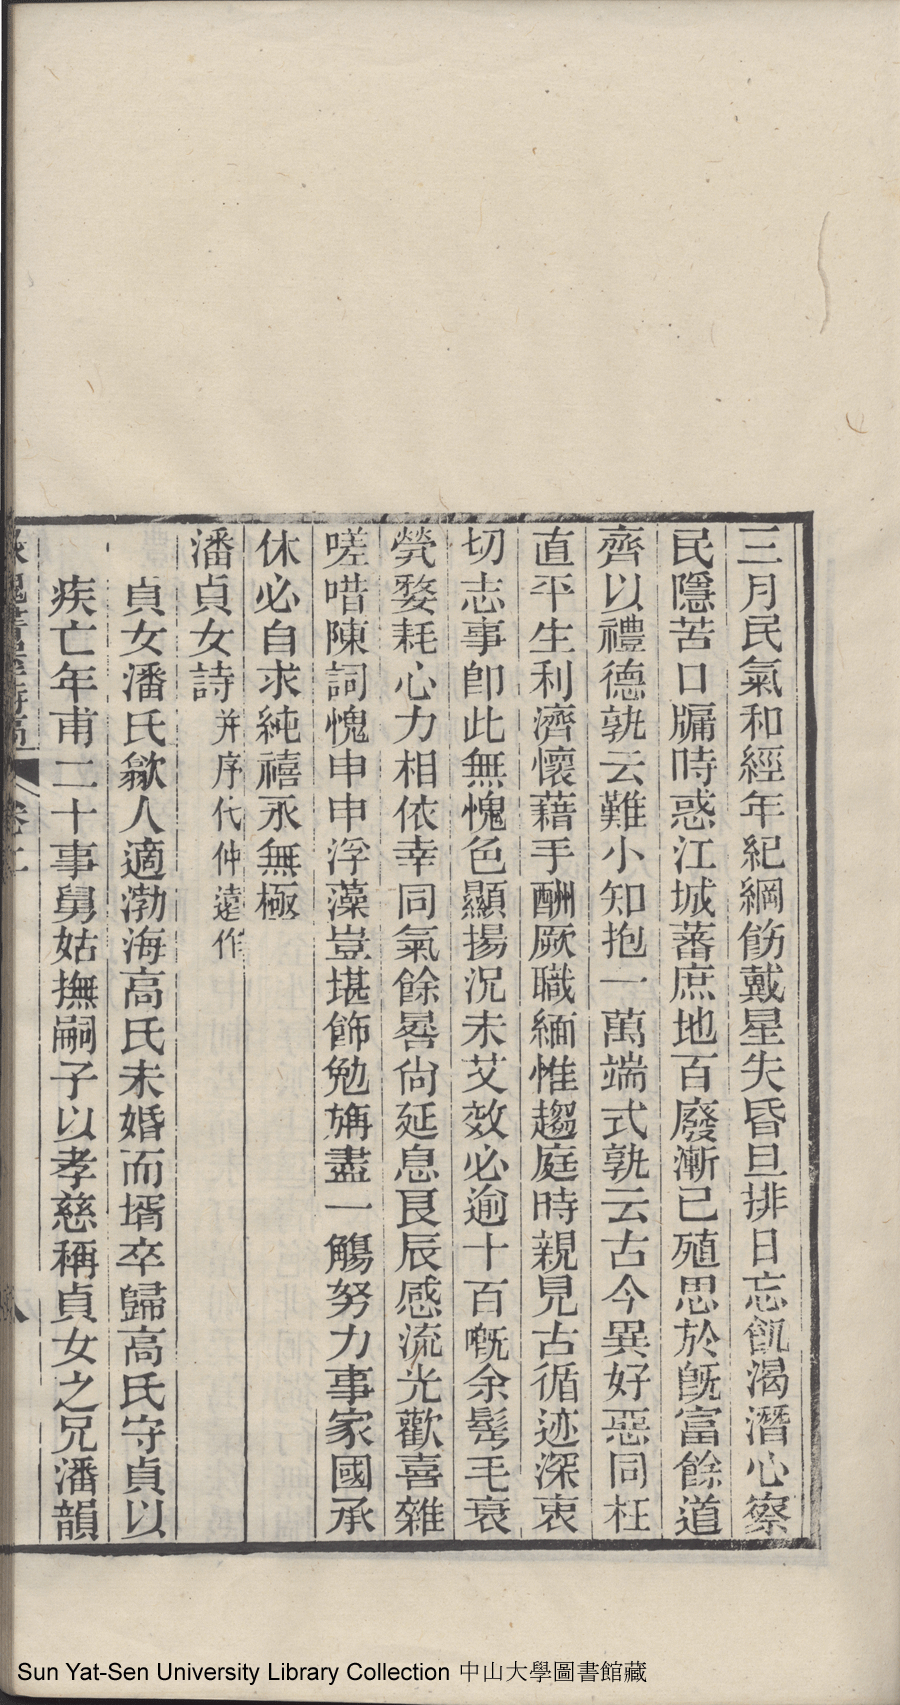 三月民氣和經年紀綱飭戴星失昏旦排日忘飢渴潛心察
民隱苦口牖時惑江城蕃庶地百廢漸已殖思於旣富餘道
齊以禮德孰云難小知抱一萬端式孰云古今異好惡同枉
直平生利濟懷藉手酬厥職緬惟趨庭時親見古循迹深衷
切志事卽此無愧色顯揚況未艾效必逾十百嘅余髩毛衰
煢嫠耗心力相依幸同氣餘晷尙延息良辰感流光歡喜雜
嗟唶陳詞愧申申浮藻豈堪飾勉旃盡一觴努力事家國承
休必自求純禧永無極
潘貞女詩 并序代仲遠作
貞女潘氏歙人適渤海高氏未婚而壻卒歸高氏守貞以
疾亡年甫二十事舅姑撫嗣子以孝慈稱貞女之兄潘韻
卷二
八
Sun Yat-Sen University Library Collection 中山大學圖書館藏